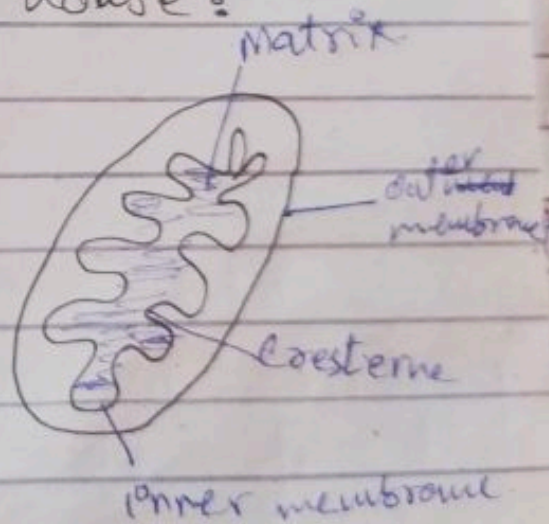 house?
Matrix
outer
membrane
Cresterne
Inner membrane